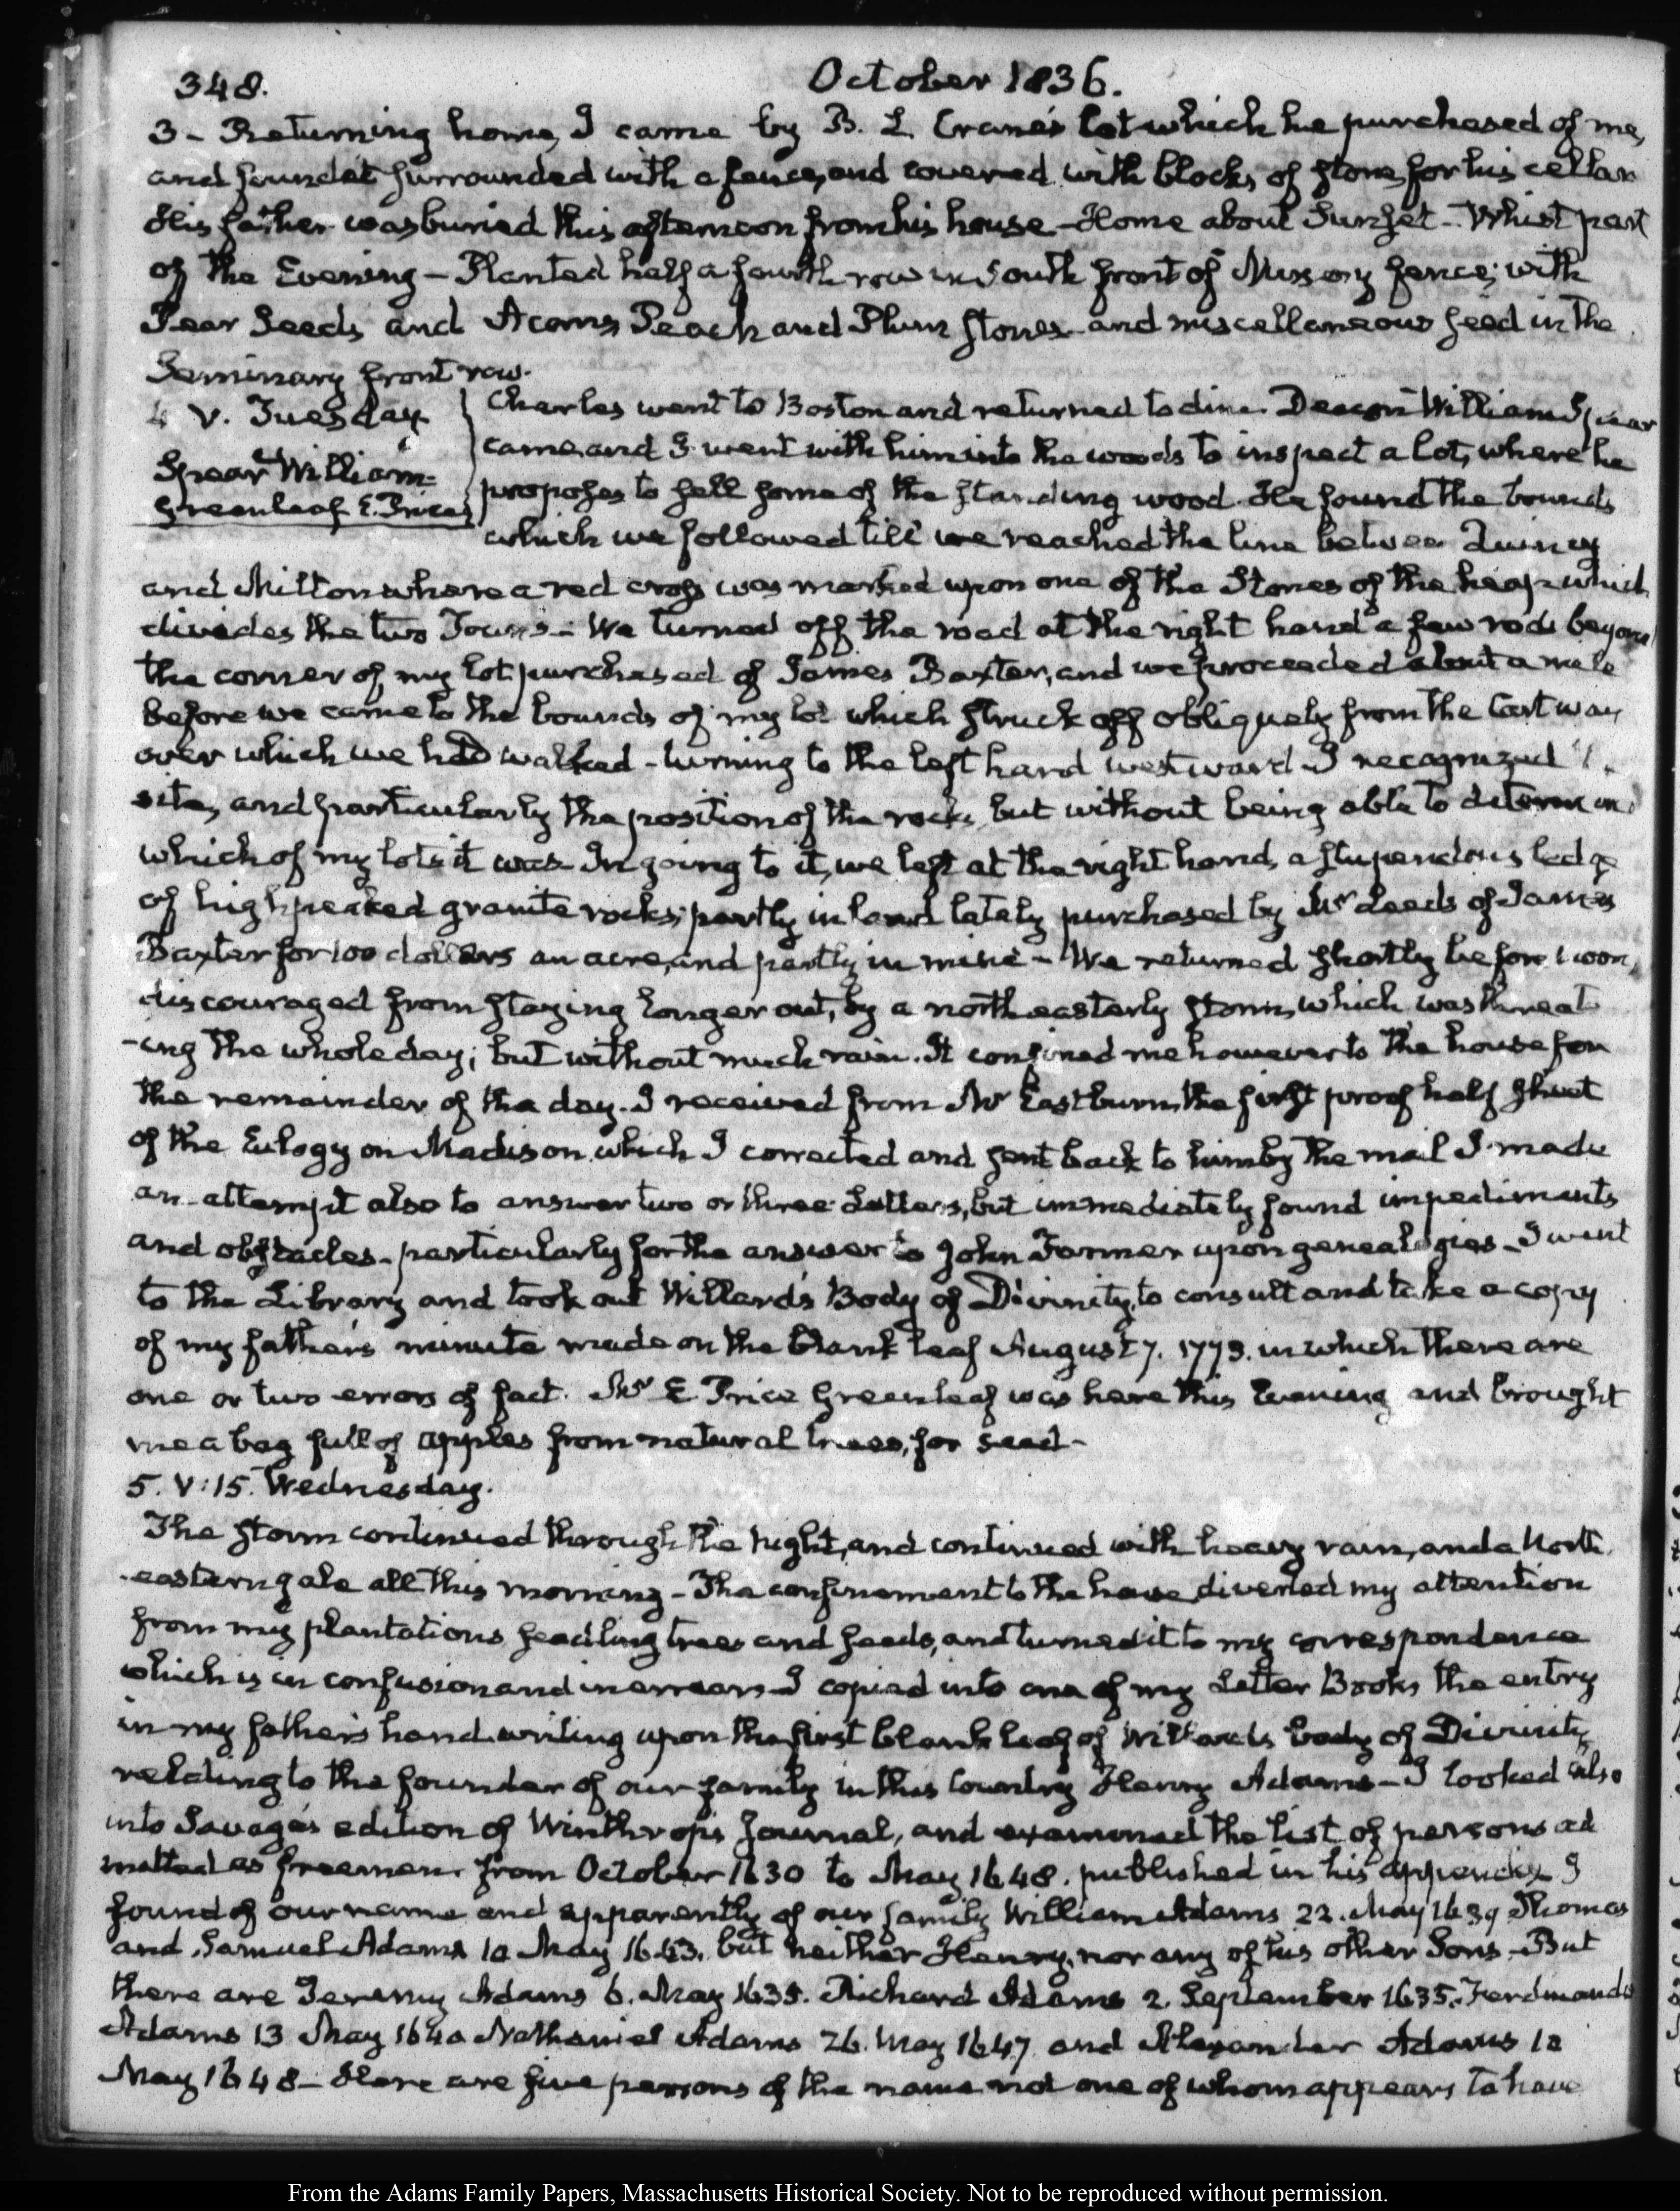 348.
October 1836.
3 - Returning home, I came by B. L. Crane's lot which he purchased of me,
and found it surrounded with a fence, and covered with blocks of stone, for his cellar
His father was buried this afternoon from his house - Home about Sunset - Whist part
of the Evening - Planted half a fourth row in South front of Nursery fence; with
Pear Seeds and Acorns Peach and Plum stones and miscellaneous seed in the
Seminary front row.
4 V. Tuesday
Spear William
Greenleaf E. Price
Charles went to Boston and returned to dine. Deacon William Spear
came, and I went with him into the woods to inspect a lot, where he
proposes to sell some of the standing wood. He found the bounds
which we followed till we reached the line between Quincy
and Milton where a red cross was marked upon one of the Stones of the heap which
divides the two Towns - We turned off the road at the right hand a few rods beyond
the corner of my lot purchased of James Baxter, and we proceeded about a mile
before we came to the bounds of my lot which struck off obliquely from the Cart way
over which we had walked - turning to the left hand westward - I recognized
site, and particularly the position of the rocks, but without being able to determine
which of my lots it was - In going to it, we left at the right hand, a stupendous ledge
of high peaked granite rocks; partly in land lately purchased by Mr Leeds of James
Baxter for 100 dollars an acre, and partly in mine - We returned shortly before noon,
discouraged from staying longer out, by a northeasterly storm, which was threat
-ing the whole day; but without much rain. It confined me however to the house for
the remainder of the day. I received from Mr Eastburn the first proof half sheet
of the Eulogy on Madison which I corrected and sent back to him by the mail I made
an attempt also to answer two or three Letters, but immediately found impediments
and obstacles - particularly for the answer to John Farmer upon genealogies - I went
to the Library and took out Willard's Body of Divinity, to consult and take a copy
of my father's minute made on the blank leaf August 7. 1773. in which there are
one or two errors of fact. Mr E Price Greenleaf was here this Evening and brought
me a bag full of apples from natural trees, for seed -
5. V:15. Wednesday.
The storm continued through the night, and continued with heavy rain, and a North
eastern gale all this morning - The confinement to the house diverted my attention
from my plantations seedling trees and seeds, and turned it to my correspondence
which is in confusion and in arrears - I copied into one of my Letter Books the entry
in my father's hand writing upon the first blank leaf of Willard's body of Divinity
relating to the founder of our family in this Country Henry Adams - I looked also
into Savage's edition of Winthrop's Journal, and examined the list of persons ad
mitted as freemen from October 1630 to May 1648. published in his appendix - I
found of our name and apparently of our family William Adams 22. May 1639 Thomas
and Samuel Adams 10 May 1643. but neither Henry, nor any of his other Sons - But
there are Jeremy Adams 6. May 1635. Richard Adams 2. September 1635. Ferdinando
Adams 13 May 1640 Nathaniel Adams 26. May 1647 and Alexander Adams 10
May 1648 - Here are five persons of the name not one of whom appears to have
From the Adams Family Papers, Massachusetts Historical Society. Not to be reproduced without permission.